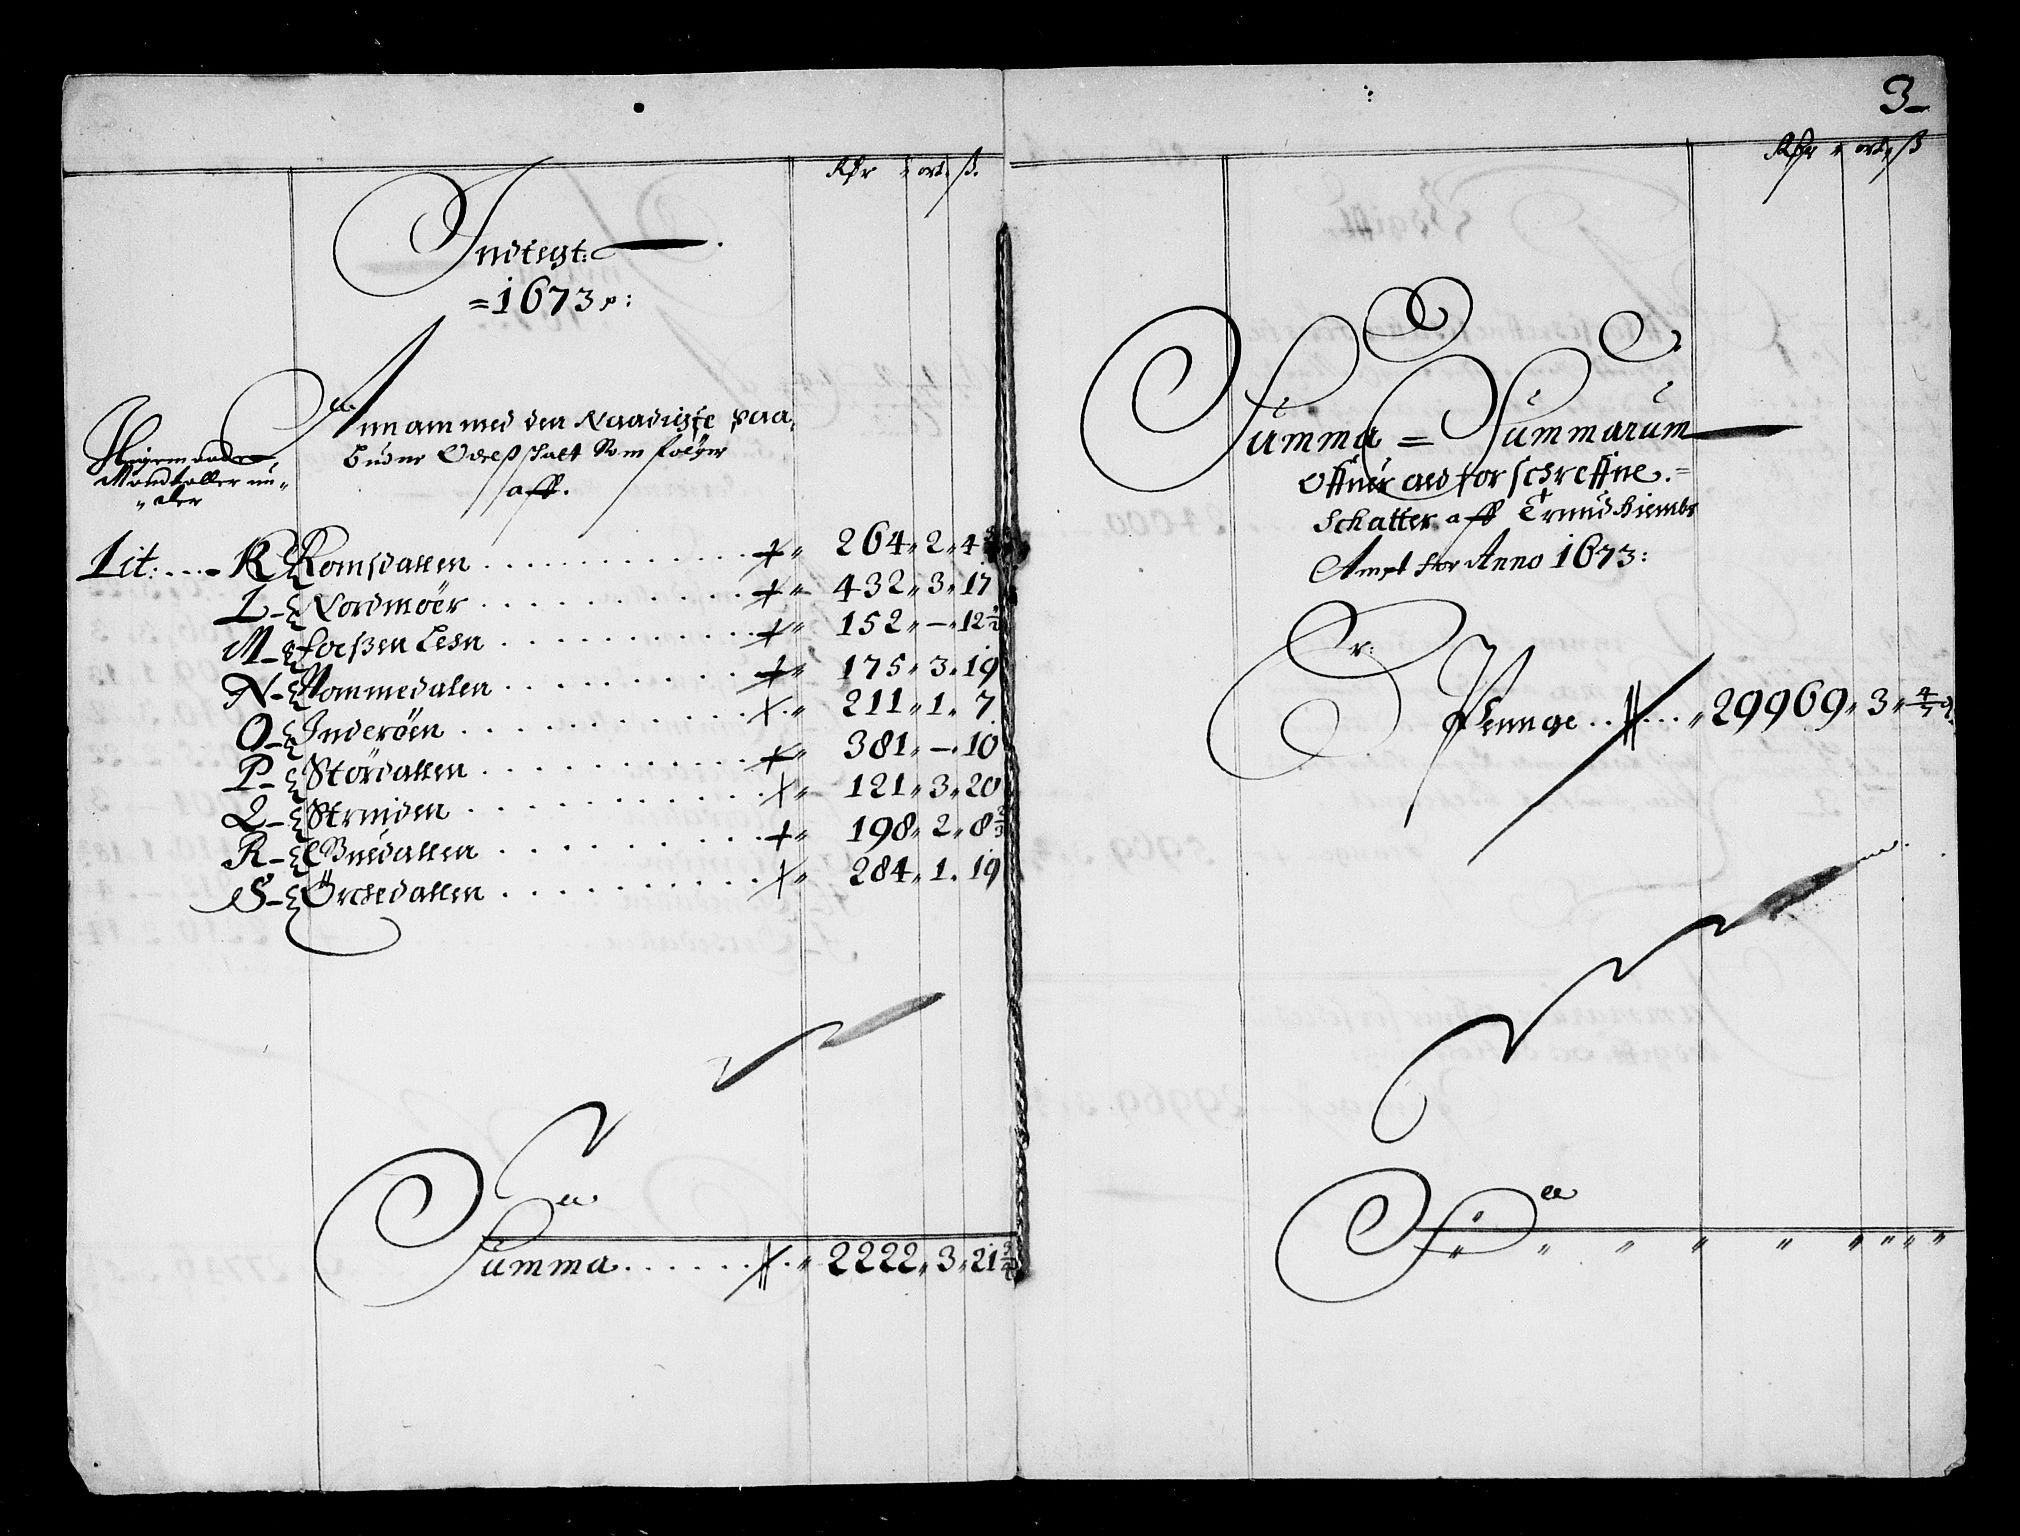 Rdr ort. ß.
Indtegt:
=1673:
Annammed den Naadigste paa,
budne Odelß schatt Som følger
aff.
Mandtaller un,,
,,der
Lit: .... K Romsdallen ,, 264,, 2,, 4
L Nordmöer ,, 432,, 3,, 17
M foeßen Lehn ,, 152,, - ,, 12 1/2
N Nommedalen ,, 175,, 3,, 19
O Inderöen ,, 211,, 1,, 7
P Stördallen ,, 381,, - ,, 10
Q Strinden ,, 121,, 3,, 20
R Guldallen ,, 198,, 2,, 8 2/3
S Örchedallen ,, 284,, 1,, 19
Summa ...... ,, 2222,, 3,, 21
3
Rdr ort. ß
Summa = Summarum
offuer alt forschreffne =
Schatter aff Trundhiembs
Ampt for Anno 1673:
Er:
Penge .. ,, 29969,, 3,, 4/7